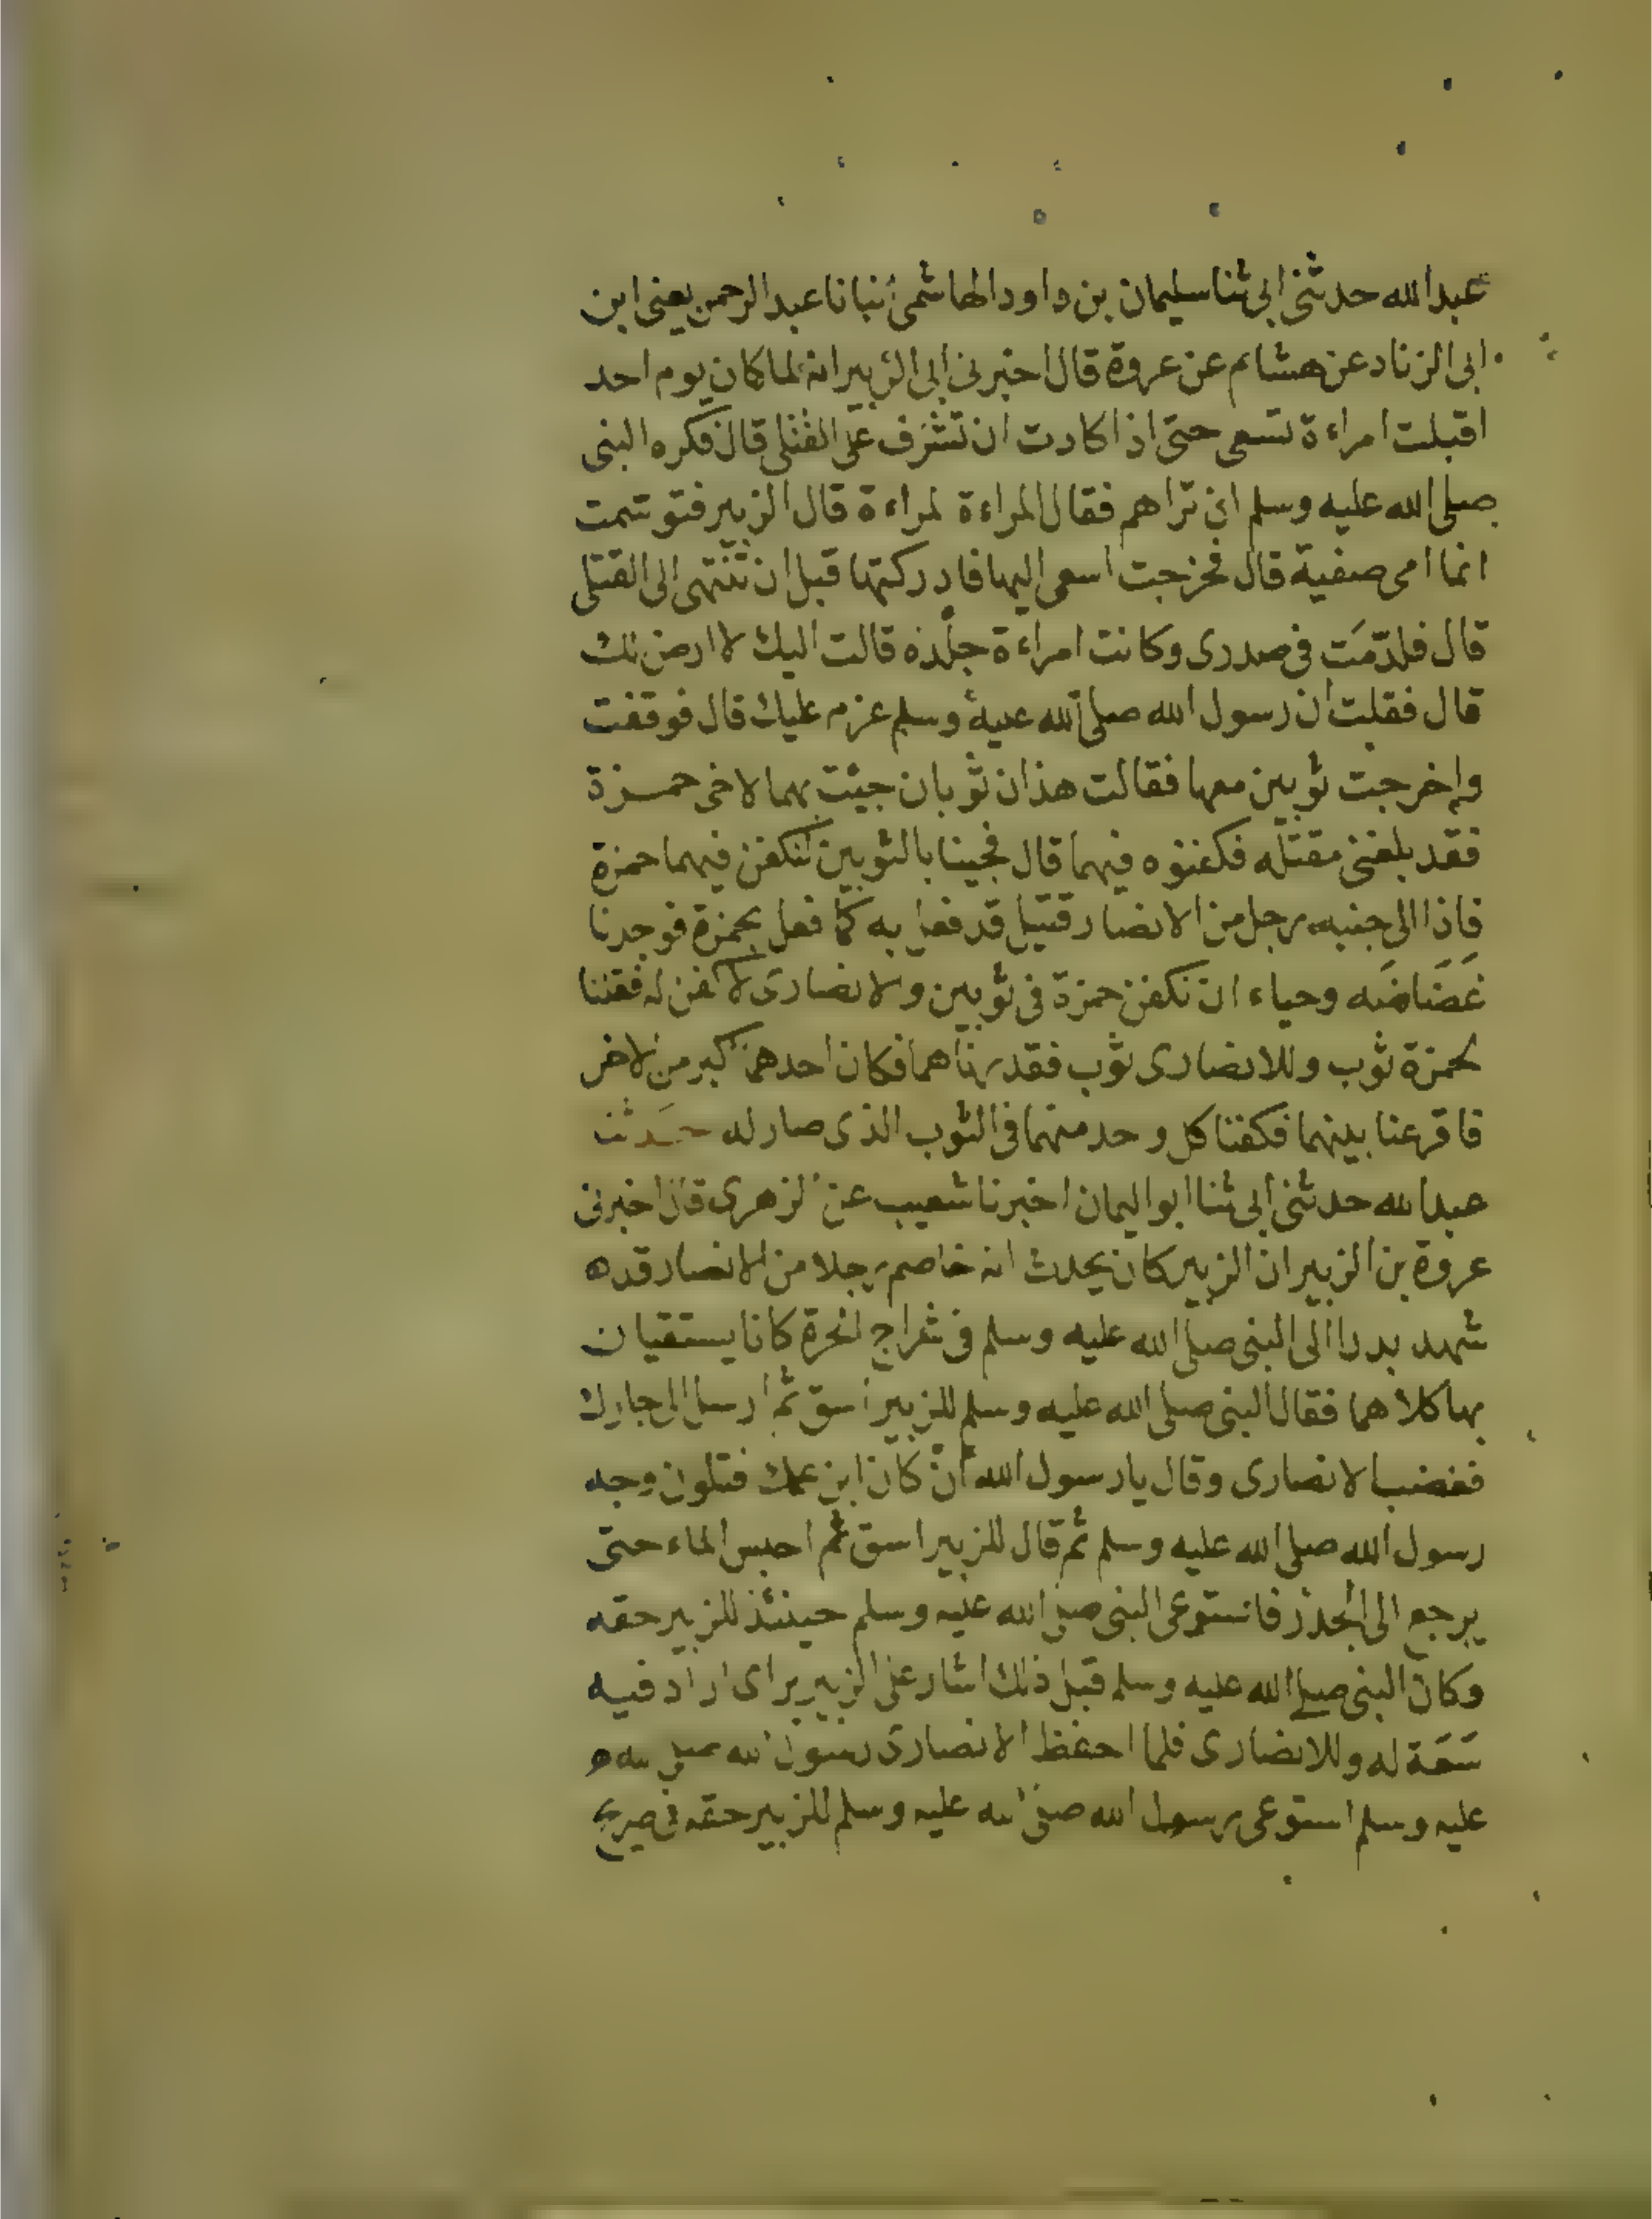 عبد الله حدثني ابي ثنا سليمان بن داود الهاشمي أنبانا عبد الرحمن يعنى ابن
ابى الزناد عن هشام عن عروة قال اخبرنى ابى الزبير انه لما كان يوم احد
اقبلت امراءة تسعى حتى اذا كادت ان تشرف على القتلى قال فكره النبى
صلى الله عليه وسلم ان تراهم فقال المراءة لمراءة قال الزبير فتوسمت
انها امى صفية قال فخرجت اسعى اليها فادركتها قبل ان تنتهى الى القتلى
قال فلدّمَت فى صدرى وكانت امراءة جلده قالت اليك لا ارض لك
قال فقلت ان رسول الله صلى الله عليه وسلم عزم عليك قال فوقفت
واخرجت ثوبين معها فقالت هذان ثوبان جيئت بهما لاخى حمزة
فقد بلغنى مقتله فكفنوه فيهما قال فجينا بالثوبين لنكفن فيهما حمزة
فاذا الى جنبه رجل من الانصار قتيل قد فعل به كما فعل بحمزة فوجدنا
غَضَاضَه وحياء ان نكفن حمزة فى ثوبين والانصارى لا كفن له فقلنا
لحمزة ثوب وللانصارى ثوب فقدرناهما فكان احدهما اكبر من الاخر
فاقرعنا بينهما فكفنا كل وحد منهما فى الثوب الذى صار له حَدثنا
عبد الله حدثنى ابى ثنا ابو اليمان اخبرنا شعيب عن الزهرى قال اخبرنى
عروة بن الزبير ان الزبير كان يحدث انه خاصم رجلا من الانصار قده
شهد بدرا الى النبى صلى الله عليه وسلم فى شراج الحرة كانا يستقيان
بها كلاهما فقال النبى صلى الله عليه وسلم للزبير اسق ثم ارسل الى جارك
فغضب الانصارى وقال يا رسول الله أنْ كان ابن عمك فتلون وجه
رسول الله صلى الله عليه وسلم ثم قال للزبير اسق ثم احبس الماء حتى
يرجع الى الجدر فاستوعى النبى صلى الله عليه وسلم حينئذ للزبير حقه
وكان النبى صلى الله عليه وسلم قبل ذلك اشار على الزبير براى اراد فيه
سَعَة له وللانصارى فلما احفظ الانصارى رسول الله صلى الله
عليه وسلم استوعى رسول الله صلى الله عليه وسلم للزبير حقه فى صريح